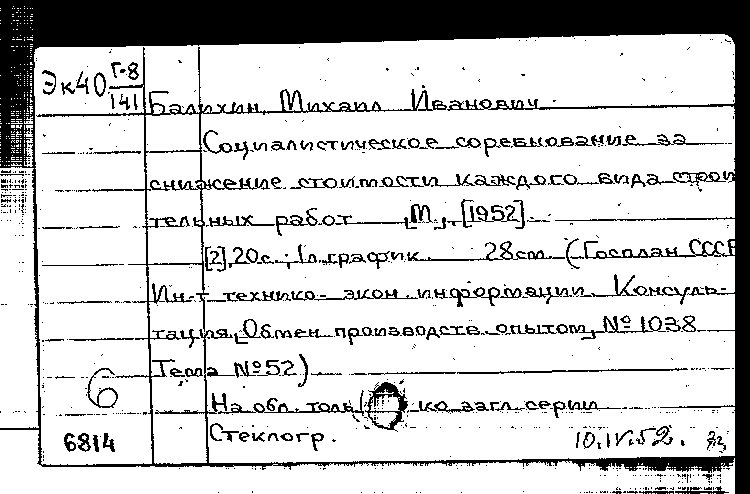 Эк40 Г-8
141
Балихин, Михаил Иванович.
Социалистическое соревнование за
снижение стоимости каждого вида строи
тельных работ. М., [1952].
[2], 20с.; 1л. график. 28см. (Госплан СССР
Ин-т технико-экон. информации. Консуль-
тация, Обмен производств. опытом, № 1038
Тема № 52)
6
На обл. толь ко загл. серии
Стеклогр.
6814
10.IV.52.